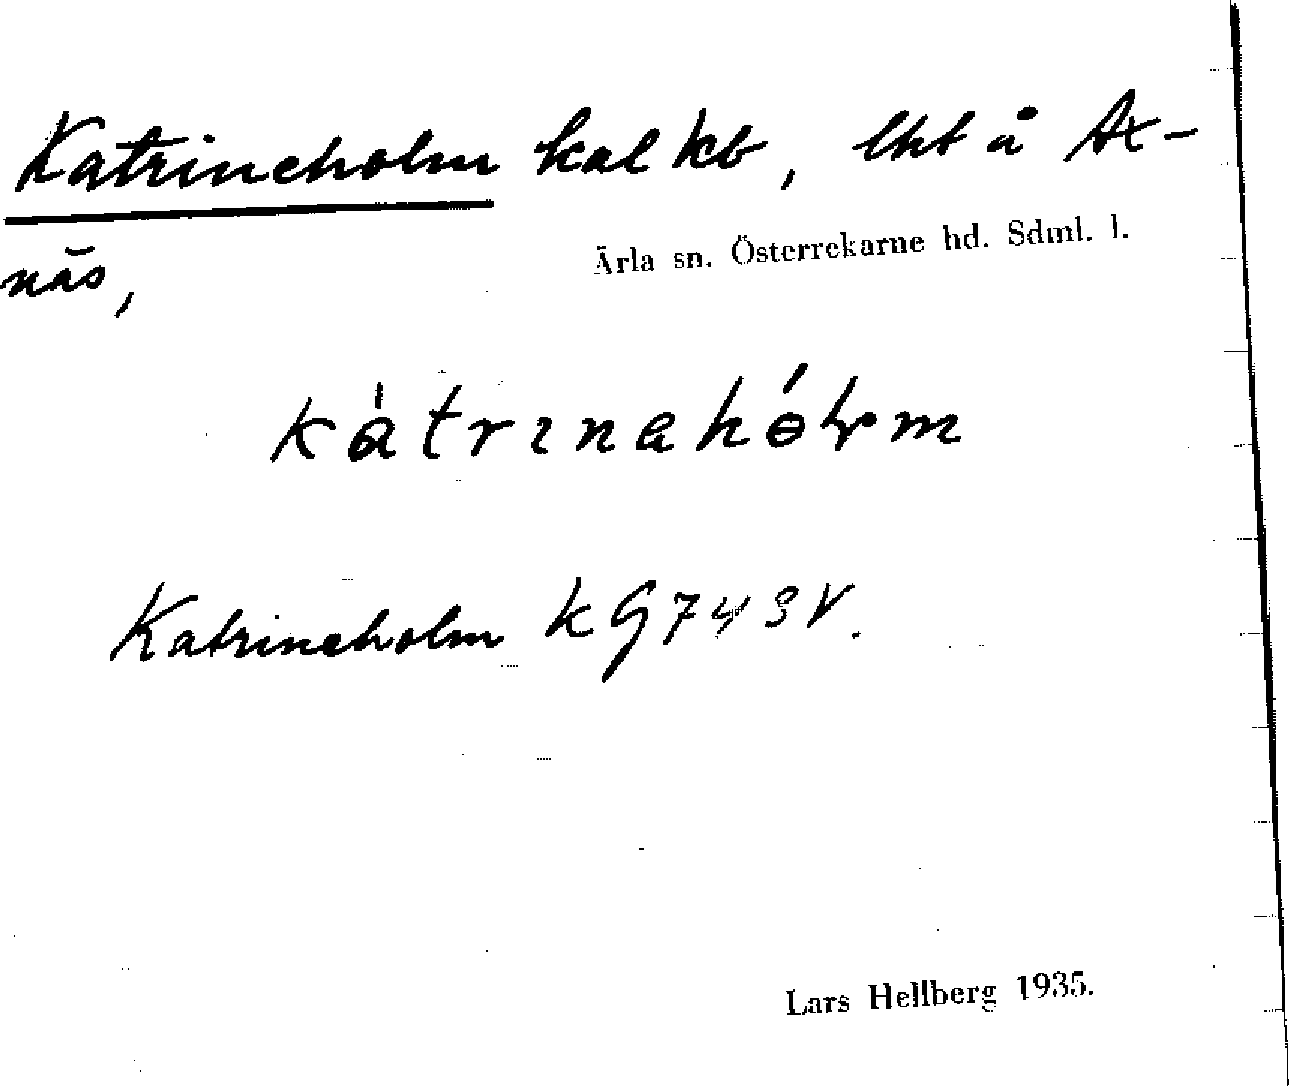 Katrineholm kal kb, lht å Ax-
Ärla sn. Österrekarne hd. Sdml. l.
näs,
kàtrınahólm
Katrineholm k G 74 SV.
Lars Hellberg 1935.